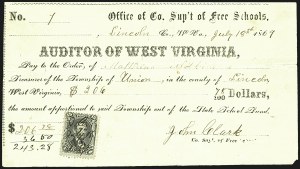 No. 1 Office of Co. Sup't of Free Schools,
Lincoln Co., W. Va., July 1869
AUDITOR OF WEST VIRGINIA,
Pay to the Order, of
Treasurer of the Township of Union, in the county of Lincoln
West Virginia, $ 206 78/100 Dollars,
the amount apportioned to said Township out of the State School Fund.
$ 206.78
36.50
243.28
John Clark
Co. Sup't. of Free